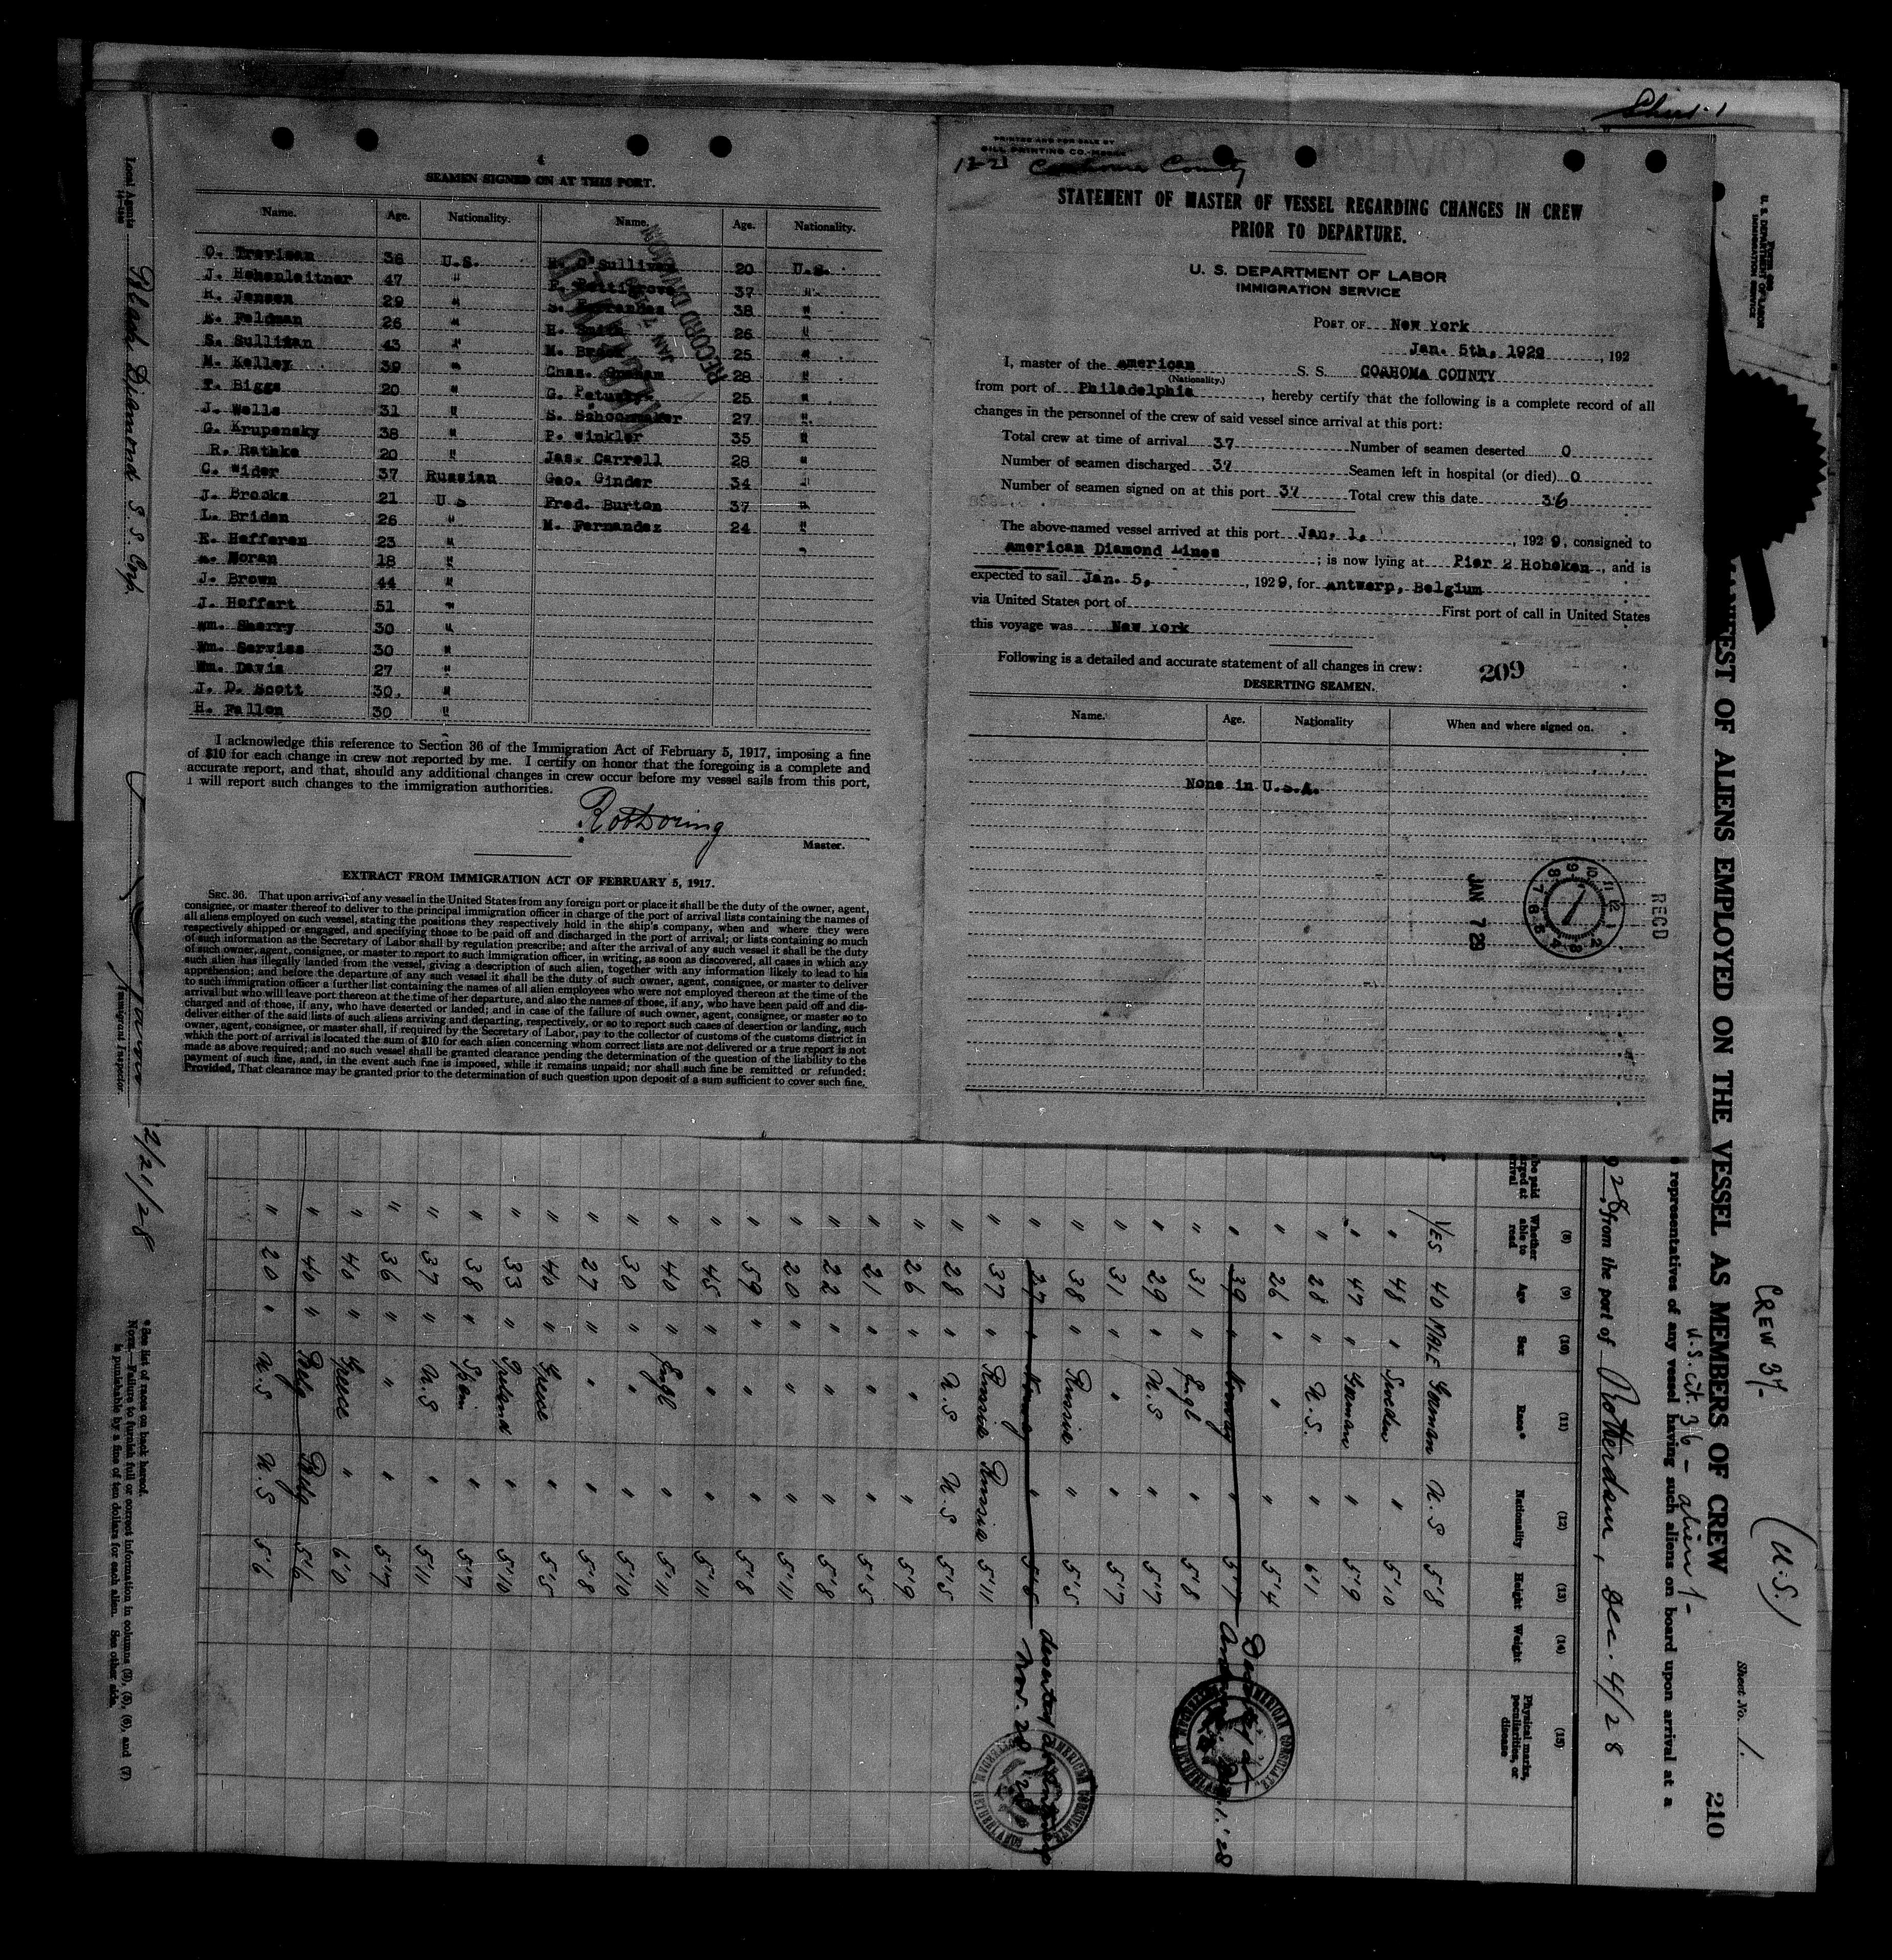 SEAMEN SIGNED ON AT THIS PORT.
Name. Age. Nationality. Name. Age. Nationality.
O. Trevisan 36 U.S. O'Sullivan 20 U.S.
J. Hohenleitner 47 " Pettigrove 37 "
K. Jensen 29 " 38 "
Feldman 26 " H. Smith 26 "
S. Sullivan 43 " M. 25 "
M. Kelley 39 " Chas. Graham 28 "
T. Biggs 20 " G. 25 "
J. Wells 31 " S. Schoonmaker 27 "
G. Krupensky 38 " P. Winkler 35 "
R. Rathke 20 " Jas. Carrell 28 "
C. Wider 37 Russian Geo. Ginder 34 "
J. Brooks 21 U S Fred. Burton 37 "
L. Briden 26 " M. Fernandez 24 "
E. Hefferan 23 "
Moran 18 "
J. Brown 44 "
J. Hoffart 51 "
Wm. Sherry 30 "
Wm. Serviss 30 "
Wm. Davis 27 "
J. D. Scott 30. "
H. Fallon 30 "
I acknowledge this reference to Section 36 of the Immigration Act of February 5, 1917, imposing a fine
of $10 for each change in crew not reported by me. I certify on honor that the foregoing is a complete and
accurate report, and that, should any additional changes in crew occur before my vessel sails from this port,
I will report such changes to the immigration authorities.
Master.
EXTRACT FROM IMMIGRATION ACT OF FEBRUARY 5, 1917.
SEC. 36. That upon arrival of any vessel in the United States from any foreign port or place it shall be the duty of the owner, agent,
consignee, or master thereof to deliver to the principal immigration officer in charge of the port of arrival lists containing the names of
all aliens employed on such vessel, stating the positions they respectively hold in the ship's company, when and where they were
respectively shipped or engaged, and specifying those to be paid off and discharged in the port of arrival; or lists containing so much
of such information as the Secretary of Labor shall by regulation prescribe; and after the arrival of any such vessel it shall be the duty
of such owner, agent, consignee, or master to report to such immigration officer, in writing, as soon as discovered, all cases in which any
such alien has illegally landed from the vessel, giving a description of such alien, together with any information likely to lead to his
apprehension; and before the departure of any such vessel it shall be the duty of such owner, agent, consignee, or master to deliver
to such immigration officer a further list containing the names of all alien employees who were not employed thereon at the time of the
arrival but who will leave port thereon at the time of her departure, and also the names of those, if any, who have been paid off and dis-
charged and of those, if any, who have deserted or landed; and in case of the failure of such owner, agent, consignee, or master so to
deliver either of the said lists of such aliens arriving and departing, respectively, or so to report such cases of desertion or landing, such
owner, agent, consignee, or master shall, if required by the Secretary of Labor, pay to the collector of customs of the customs district in
which the port of arrival is located the sum of $10 for each alien concerning whom correct lists are not delivered or a true report is not
made as above required; and no such vessel shall be granted clearance pending the determination of the question of the liability to the
payment of such fine, and, in the event such fine is imposed, while it remains unpaid; nor shall such fine be remitted or refunded:
Provided, That clearance may be granted prior to the determination of such question upon deposit of a sum sufficient to cover such fine.
PRINTED AND FOR SALE BY
GILL PRINTING CO.-
12-21 Coahoma County
STATEMENT OF MASTER OF VESSEL REGARDING CHANGES IN CREW
PRIOR TO DEPARTURE.
U. S. DEPARTMENT OF LABOR
IMMIGRATION SERVICE
PORT OF New York
Jan. 5th, 1929, 192
I, master of the American S. S. COAHOMA COUNTY
(Nationality.)
from port of Philadelphia, hereby certify that the following is a complete record of all
changes in the personnel of the crew of said vessel since arrival at this port:
Total crew at time of arrival 37 Number of seamen deserted 0
Number of seamen discharged 37 Seamen left in hospital (or died) 0
Number of seamen signed on at this port 37 Total crew this date 36
The above-named vessel arrived at this port Jan. 1, 1929, consigned to
American Diamond Lines; is now lying at Pier 2 Hoboken, and is
expected to sail Jan. 5, 1929, for Antwerp, Belgium
via United States port of First port of call in United States
this voyage was New York
Following is a detailed and accurate statement of all changes in crew: 209
DESERTING SEAMEN.
Name. Age. Nationality When and where signed on.
None in U.S.A.
RECD
JAN 7 29
Local Agents Black Diamond S. S. Corp.
Immigrant Inspector.
2/21/28
U. S. DEPARTMENT OF LABOR
IMMIGRATION SERVICE
OF ALIENS EMPLOYED ON THE VESSEL AS MEMBERS OF CREW
CREW 37-
(U.S.)
U.S. cit. 36 - alien 1-
Sheet No. 1.
210
representatives of any vessel having such aliens on board upon arrival at a
28, from the port of Rotterdam, Dec. 4/28
(8) Whether able to read (9) Age (10) Sex (11) Race* (12) Nationality (13) Height (14) Weight (15) Physical marks, peculiarities, or disease
YES 40 MALE German U.S 5'8
" 48 " Sweden " 5'10
" 47 " German " 5'9
" 28 " U.S. " 6'1
" 26 " " " 5'4
" 39 " Norway " 5'7
" 31 " Engl " 5'8
" 29 " U.S " 5'7
" 31 " " " 5'7
" 38 " Russia " 5'5
" 27 " Norway " 5'8 deserted at Antwerp Nov. 28
" 37 " Russia Russia 5'11
" 28 " U.S U.S 5'5
" 26 " " " 5'9
" 21 " " " 5'5
" 22 " " " 5'8
" 20 " " " 5'11
" 59 " " " 5'8
" 45 " " " 5'11
" 40 " Engl " 5'11
" 30 " " " 5'10
" 27 " " " 5'8
" 40 " Greece " 5'5
" 33 " Ireland " 5'10
" 38 " Spain " 5'7
" 37 " U.S " 5'11
" 36 " " " 5'7
" 40 " Greece " 6'0
" 40 " Belg Belg 5'6
" 20 " U.S U.S 5'6
AMERICAN CONSULATE
AMERICAN CONSULATE
* See list of races on back hereof.
NOTE.—Failure to furnish full or correct information in columns (3), (5), (6), and (7)
is punishable by a fine of ten dollars for each alien. See other side.